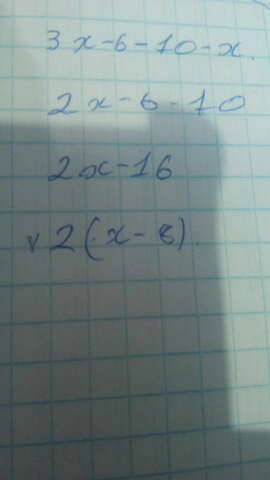 3x-6-10-x.
2x-6-10
2x-16
v 2(x-8).